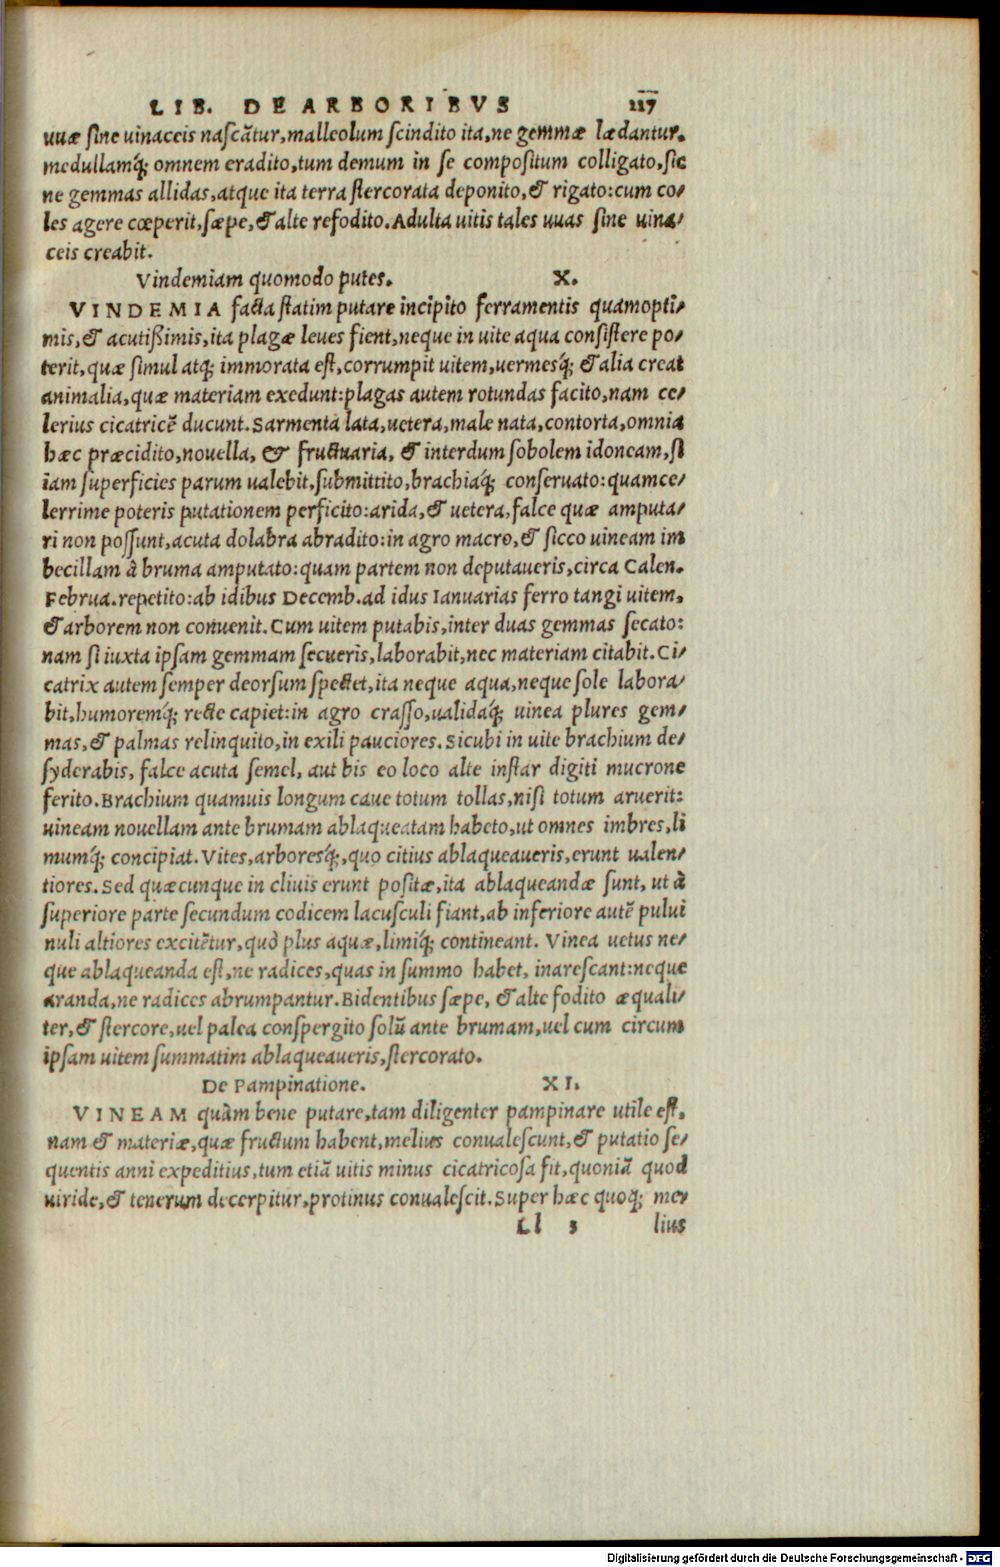 LIB. DE ARBORIBVS 117
uuæ sine uinaceis nascãtur,malleolum scindito ita,ne gemmæ lædantur.
medullamq́; omnem eradito,tum demum in se compositum colligato,sic
ne gemmas allidas,atque ita terra stercorata deponito,& rigato:cum co/
les agere cœperit,sæpe,& alte refodito.Adulta uitis tales uuas sine uina/
ceis creabit.
Vindemiam quomodo putes. X.
VINDEMIA facta statim putare incipito ferramentis quamopti/
mis,& acutißimis,ita plagæ leues fient,neque in uite aqua consistere po/
terit,quæ simul atq; immorata est,corrumpit uitem,uermesq́; & alia creat
animalia,quæ materiam exedunt:plagas autem rotundas facito,nam ce/
lerius cicatricẽ ducunt.Sarmenta lata,uetera,male nata,contorta,omnia
hæc præcidito,nouella, & fructuaria, & interdum sobolem idoneam,si
iam superficies parum ualebit,submittito,brachiaq́; conseruato:quamce/
lerrime poteris putationem perficito:arida,& uetera,falce quæ amputa/
ri non possunt,acuta dolabra abradito:in agro macro,& sicco uineam im
becillam à bruma amputato:quam partem non deputaueris,circa Calen.
Februa.repetito:ab idibus Decemb.ad idus Ianuarias ferro tangi uitem,
& arborem non conuenit.Cum uitem putabis,inter duas gemmas secato:
nam si iuxta ipsam gemmam secueris,laborabit,nec materiam citabit.Ci/
catrix autem semper deorsum spectet,ita neque aqua,neque sole labora/
bit,humoremq́; recte capiet:in agro crasso,ualidaq́; uinea plures gem/
mas,& palmas relinquito,in exili pauciores.Sicubi in uite brachium de/
syderabis, falce acuta semel, aut bis eo loco alte instar digiti mucrone
ferito.Brachium quamuis longum caue totum tollas,nisi totum aruerit:
uineam nouellam ante brumam ablaqueatam habeto,ut omnes imbres,li
mumq́; concipiat.Vites,arboresq́;,quo citius ablaqueaueris,erunt ualen/
tiores.Sed quæcunque in cliuis erunt positæ,ita ablaqueandæ sunt, ut à
superiore parte secundum codicem lacusculi fiant,ab inferiore autẽ pului
nuli altiores excitẽtur,quò plus aquæ,limiq́; contineant. Vinea uetus ne/
que ablaqueanda est,ne radices,quas in summo habet, inarescant:neque
aranda,ne radices abrumpantur.Bidentibus sæpe, & alte fodito æquali/
ter,& stercore,uel palea conspergito solũ ante brumam,uel cum circum
ipsam uitem summatim ablaqueaueris,stercorato.
De Pampinatione. XI.
VINEAM quàm bene putare,tam diligenter pampinare utile est.
nam & materiæ,quæ fructum habent,melius conualescunt,& putatio se/
quentis anni expeditius,tum etiã uitis minus cicatricosa fit,quoniã quod
uiride,& tenerum decerpitur,protinus conualescit.Super hæc quoq; me/
Ll 3 lius
Digitalisierung gefördert durch die Deutsche Forschungsgemeinschaft - DFG